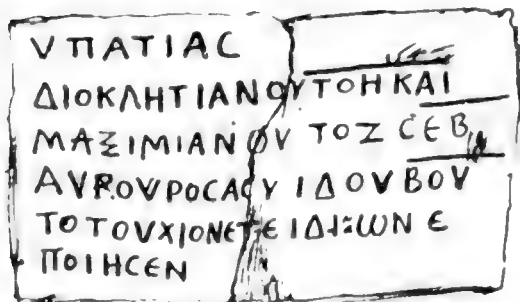 ΥΠΑΤΙΑC
ΔΙΟΚΛΗΤΙΑΝΟΥΤΟΗΚΑΙ
ΜΑΞΙΜΙΑΝΟΥ ΤΟΖ CΕΒ
ΑΥΡΟΥΡΟCΑΟΥΙΔΟΥΒΟΥ
ΤΟΤΟΥΧΙΟΝΕΤΕΙΔΙΩΝΕ
ΠΟΙΗCΕΝ